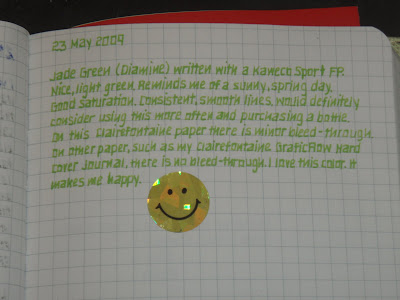 23 May 2009
Jade Green (Diamine) written with a Kaweco Sport FP.
Nice, light green. Reminds me of a sunny, spring day.
Good saturation. Consistent, smooth lines, would definitely
consider using this more often and purchasing a bottle.
On this Clairefontaine paper there is minor bleed-through.
On other paper, such as my Clairefontaine GraficFlow Hard
Cover Journal, there is no bleed-through. I love this color. It
makes me happy.